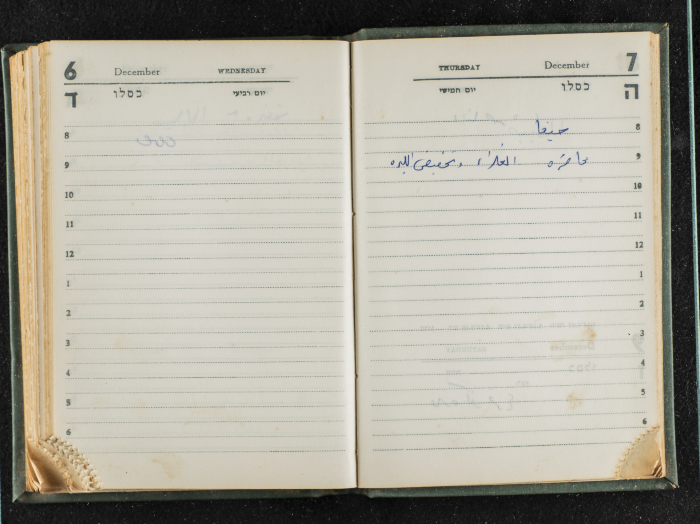 6 December WEDNESDAY
ד כסלו יום רביעי
8
9
10
11
12
1
2
3
4
5
6
THURSDAY December 7
יום חמישי כסלו ה
8 حيفا
9 محاضرة الغلاء وتخفيض الليرة
10
11
12
1
2
3
4
5
6